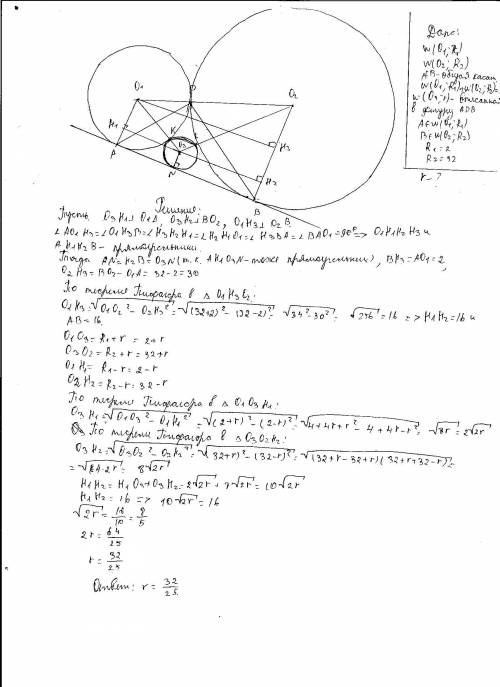 Дано:
w(O1; R1)
w(O2; R2)
AB - общая касат
w(O1; R1), w(O2; R2)
w(O3; r) - вписанная
в фигуру ADB
A∈w(O1; R1)
B∈w(O2; R2)
R1 = 2
R2 = 32
r - ?
O1
P
O2
H1
K
L
O3
A
N
H3
H2
B
Решение:
Пусть O3H1⊥O1A, O3H2⊥BO2, O1H3⊥O2B.
∠AO1H3=∠O1H3B=∠H3H2H1=∠H2H1O1=∠H3BA=∠BAO1=90° => O1H1H2H3 и
AH1H2B - прямоугольники.
Тогда AH1=H2B=O3N (т.к. AH1O3N - тоже прямоугольник), BH3=AO1=2,
O2H3=BO2-O1A=32-2=30
По теореме Пифагора в Δ O1H3O2:
O1H3=√O1O2²-O2H3²=√(32+2)²-(32-2)²=√34²-30²=√256=16 => H1H2=16 и
AB=16.
O1O3=R1+r=2+r
O3O2=R2+r=32+r
O1H1=R1-r=2-r
O2H2=R2-r=32-r
По теореме Пифагора в Δ O1O3H1:
O3H1=√O1O3²-O1H1²=√(2+r)²-(2-r)²=√4+4r+r²-4+4r-r²=√8r=2√2r
По теореме Пифагора в Δ O3O2H2:
O3H2=√O3O2²-O2H2²=√(32+r)²-(32-r)²=√(32+r-32+r)(32+r+32-r)=
=√64·2r=8√2r
H1H2=H1O3+O3H2=2√2r+8√2r=10√2r
H1H2=16 => 10√2r=16
√2r=16/10=8/5
2r=64/25
r=32/25
Ответ: r=32/25.